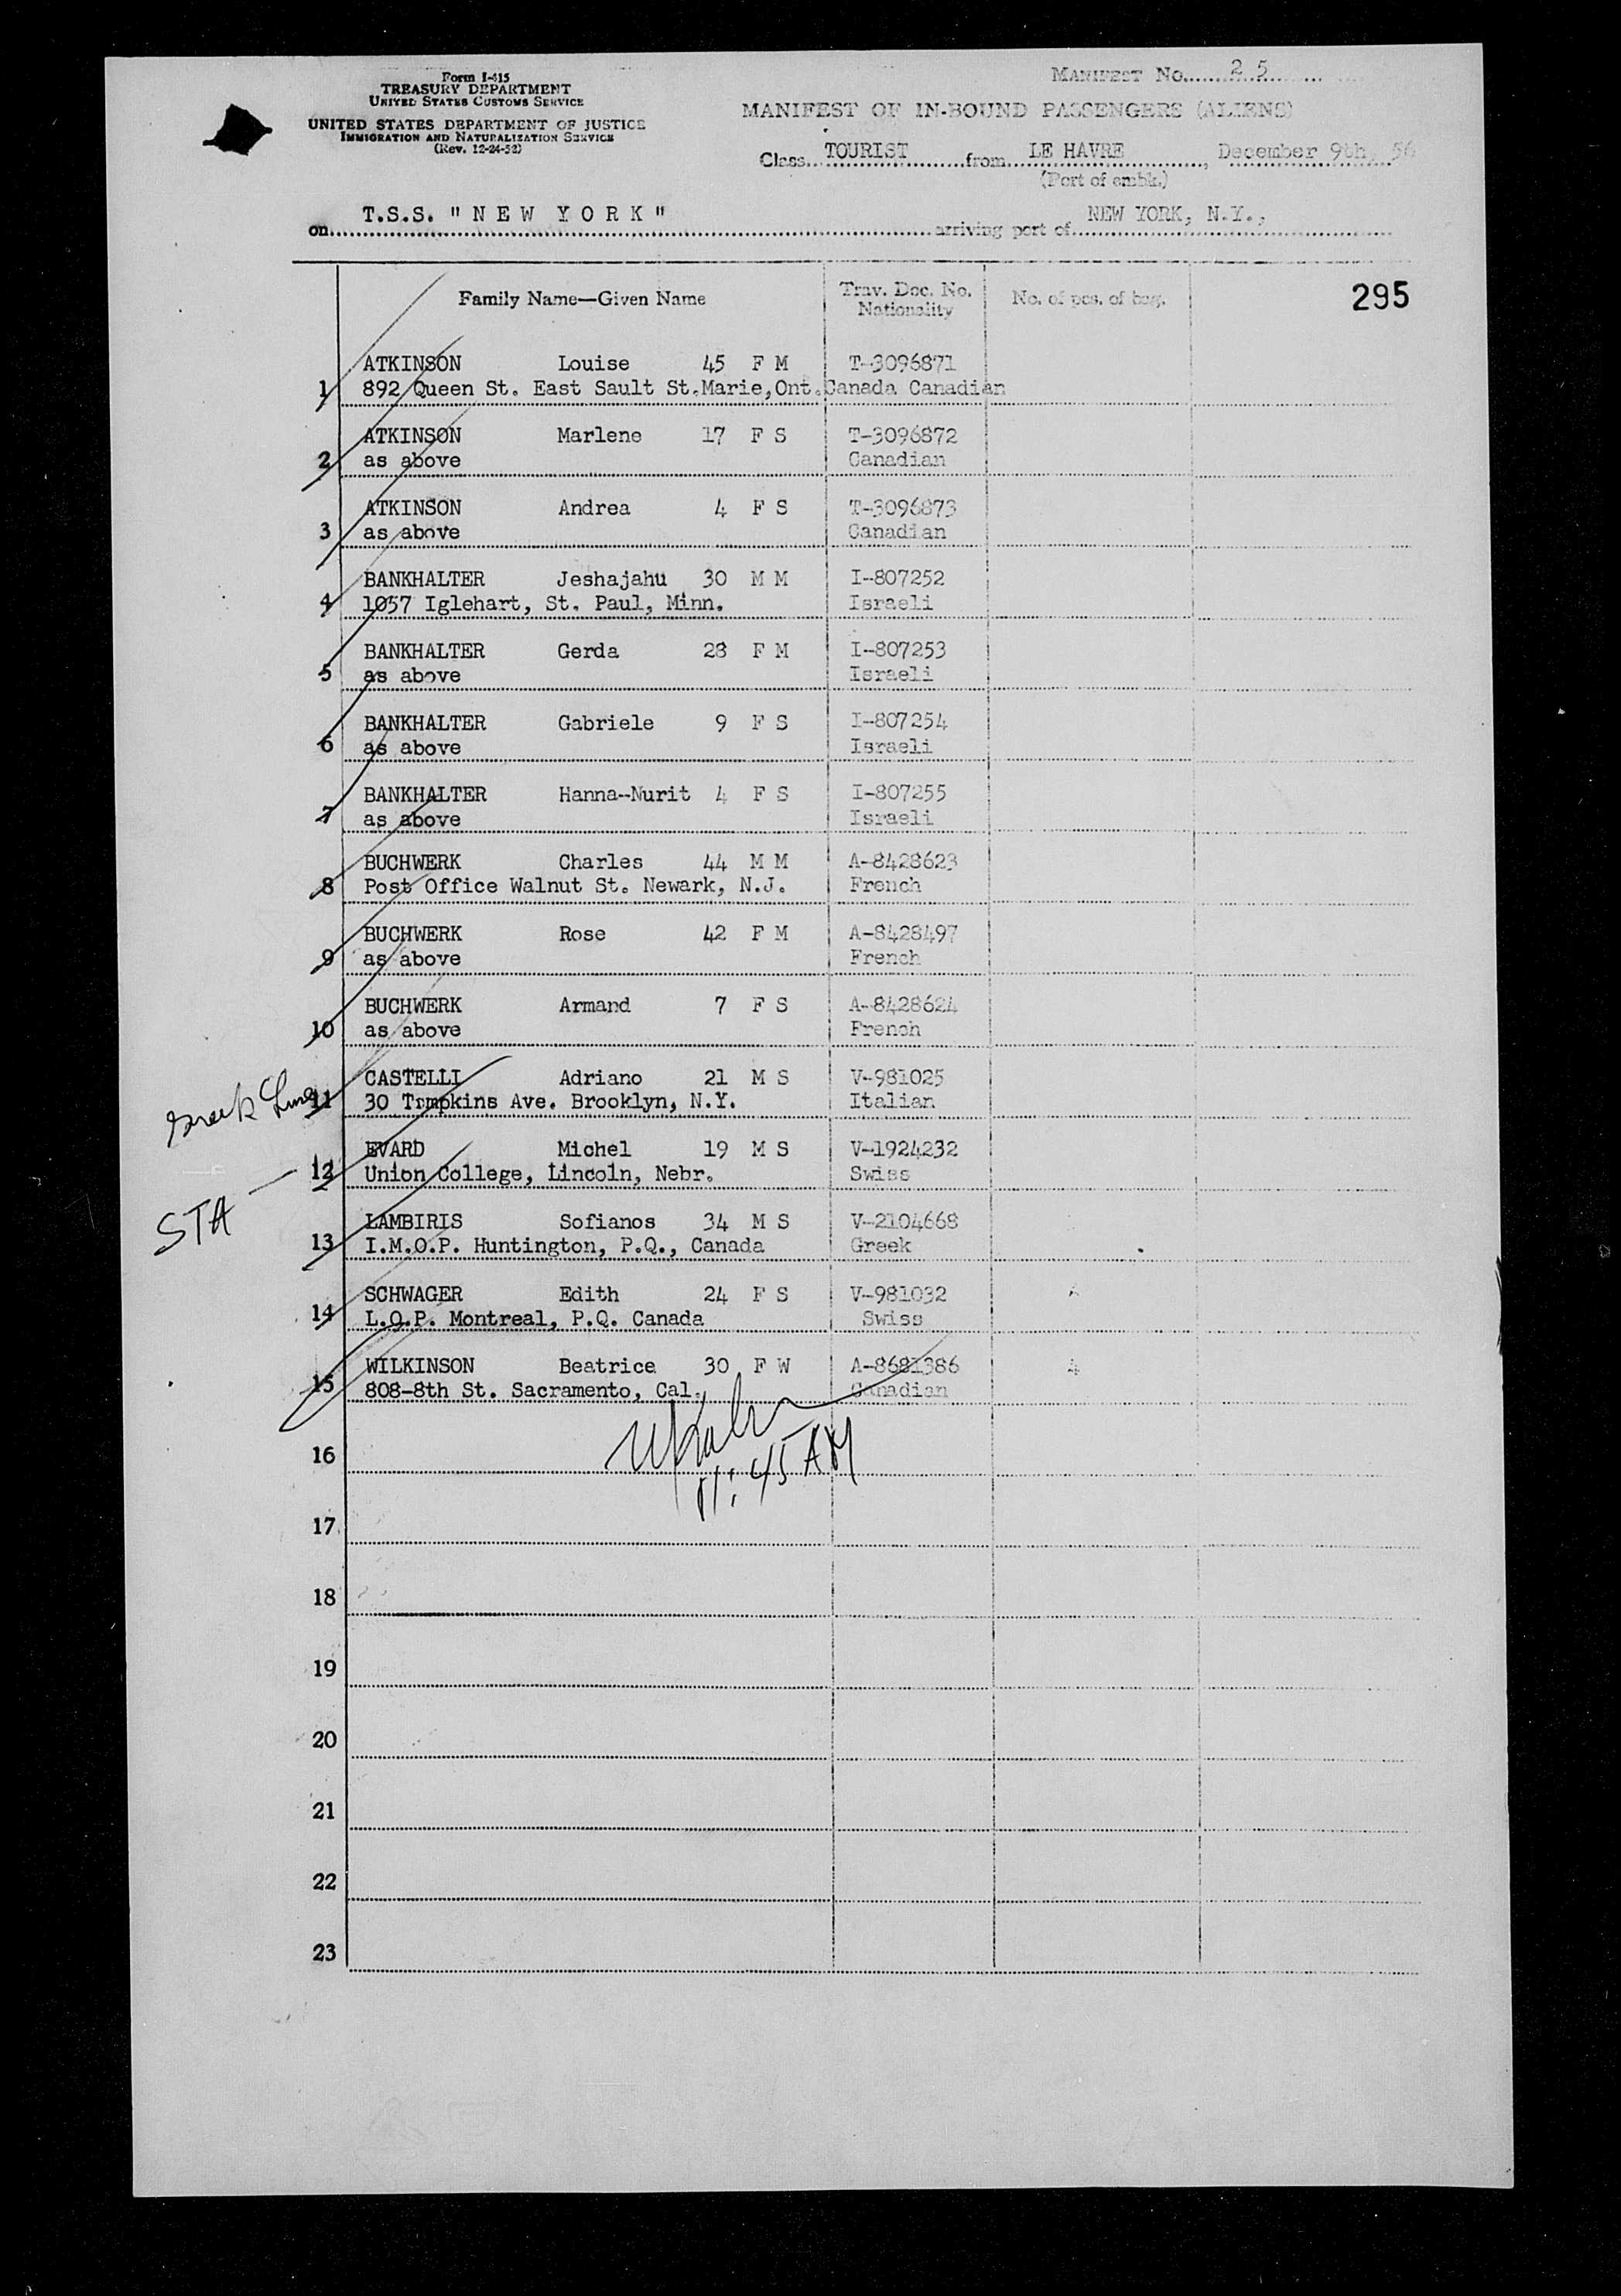 Form I-415
TREASURY DEPARTMENT
UNITED STATES CUSTOMS SERVICE
UNITED STATES DEPARTMENT OF JUSTICE
IMMIGRATION AND NATURALIZATION SERVICE
(Rev. 12-24-52)
MANIFEST No. 25
MANIFEST OF IN-BOUND PASSENGERS (ALIENS)
Class TOURIST from LE HAVRE, December 9th, 56
(Port of embk.)
on T.S.S. "NEW YORK" arriving port of NEW YORK, N.Y.,
Family Name—Given Name Trav. Doc. No. Nationality No. of pcs. of bag. 295
ATKINSON Louise 45 F M T-3096871
1 892 Queen St. East Sault St.Marie,Ont.Canada Canadian
ATKINSON Marlene 17 F S T-3096872
2 as above Canadian
ATKINSON Andrea 4 F S T-3096873
3 as above Canadian
BANKHALTER Jeshajahu 30 M M I-807252
4 1057 Iglehart, St. Paul, Minn. Israeli
BANKHALTER Gerda 28 F M I-807253
5 as above Israeli
BANKHALTER Gabriele 9 F S I-807254
6 as above Israeli
BANKHALTER Hanna-Nurit 4 F S I-807255
7 as above Israeli
BUCHWERK Charles 44 M M A-8428623
8 Post Office Walnut St. Newark, N.J. French
BUCHWERK Rose 42 F M A-8428497
9 as above French
BUCHWERK Armand 7 F S A-8428624
10 as above French
CASTELLI Adriano 21 M S V-981025
Greek Line 11 30 Tompkins Ave. Brooklyn, N.Y. Italian
EVARD Michel 19 M S V-1924232
12 Union College, Lincoln, Nebr. Swiss
STA —
LAMBIRIS Sofianos 34 M S V-2104668
13 I.M.O.P. Huntington, P.Q., Canada Greek
SCHWAGER Edith 24 F S V-981032
14 L.O.P. Montreal, P.Q. Canada Swiss
WILKINSON Beatrice 30 F W A-8681386 4
15 808-8th St. Sacramento, Cal. Canadian
11:45 AM
16
17
18
19
20
21
22
23